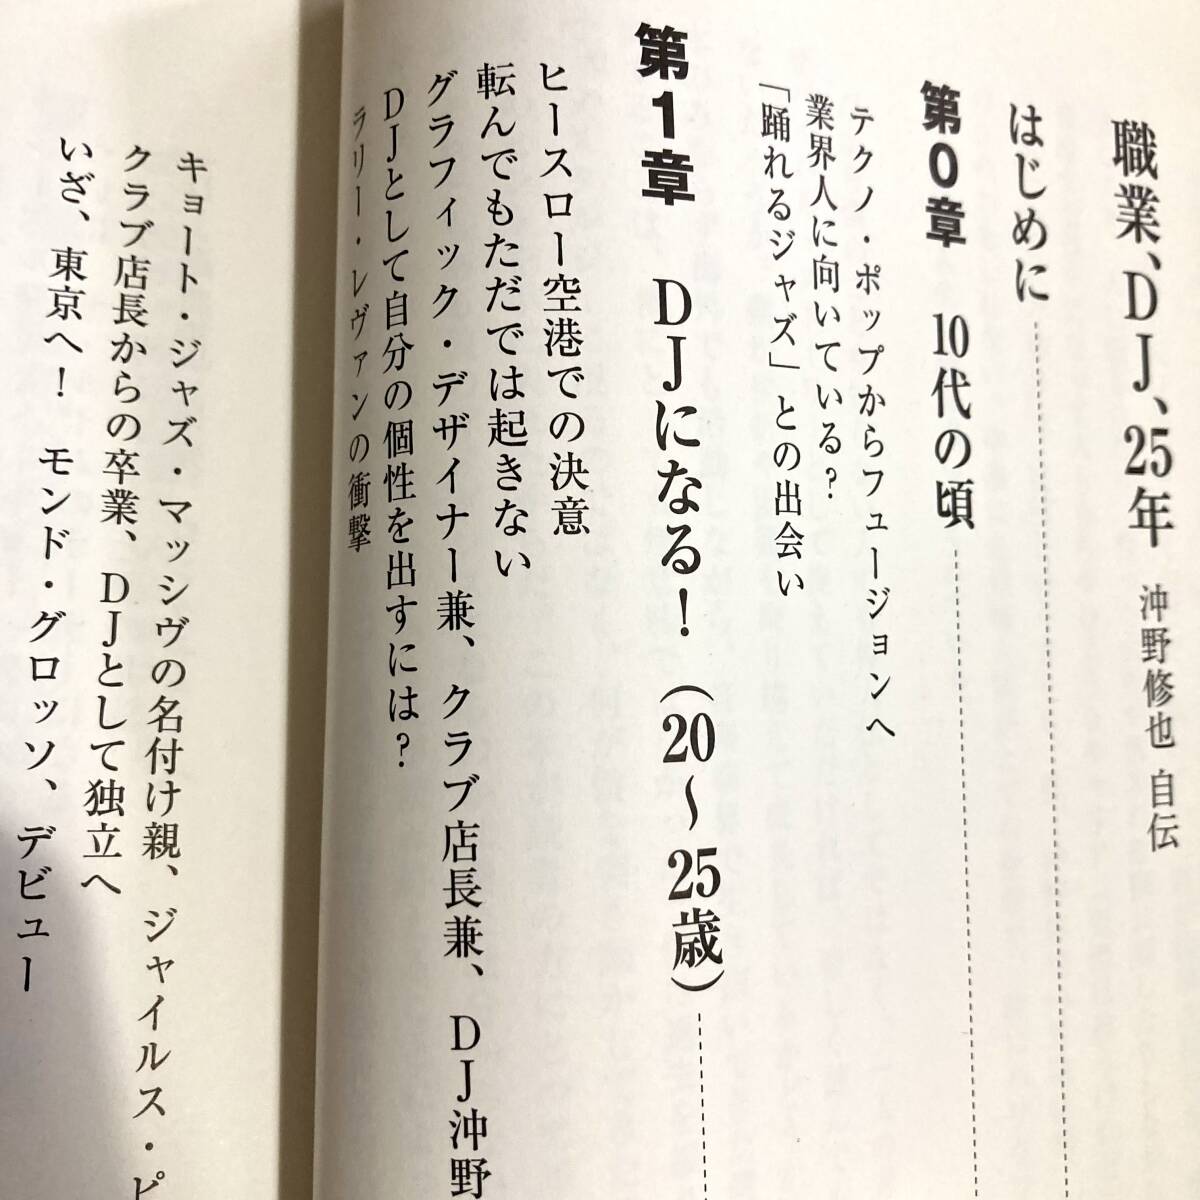 職業、DJ、25年 沖野修也 自伝
はじめに
第0章 10代の頃
テクノ・ポップからフュージョンへ
業界人に向いている?
「踊れるジャズ」との出会い
第1章 DJになる! (20〜25歳)
ヒースロー空港での決意
転んでもただでは起きない
グラフィック・デザイナー兼、クラブ店長兼、DJ沖野
DJとして自分の個性を出すには?
ラリー・レヴァンの衝撃
キョート・ジャズ・マッシヴの名付け親、ジャイルス・ピ
クラブ店長からの卒業、DJとして独立へ
いざ、東京へ! モンド・グロッソ、デビュー